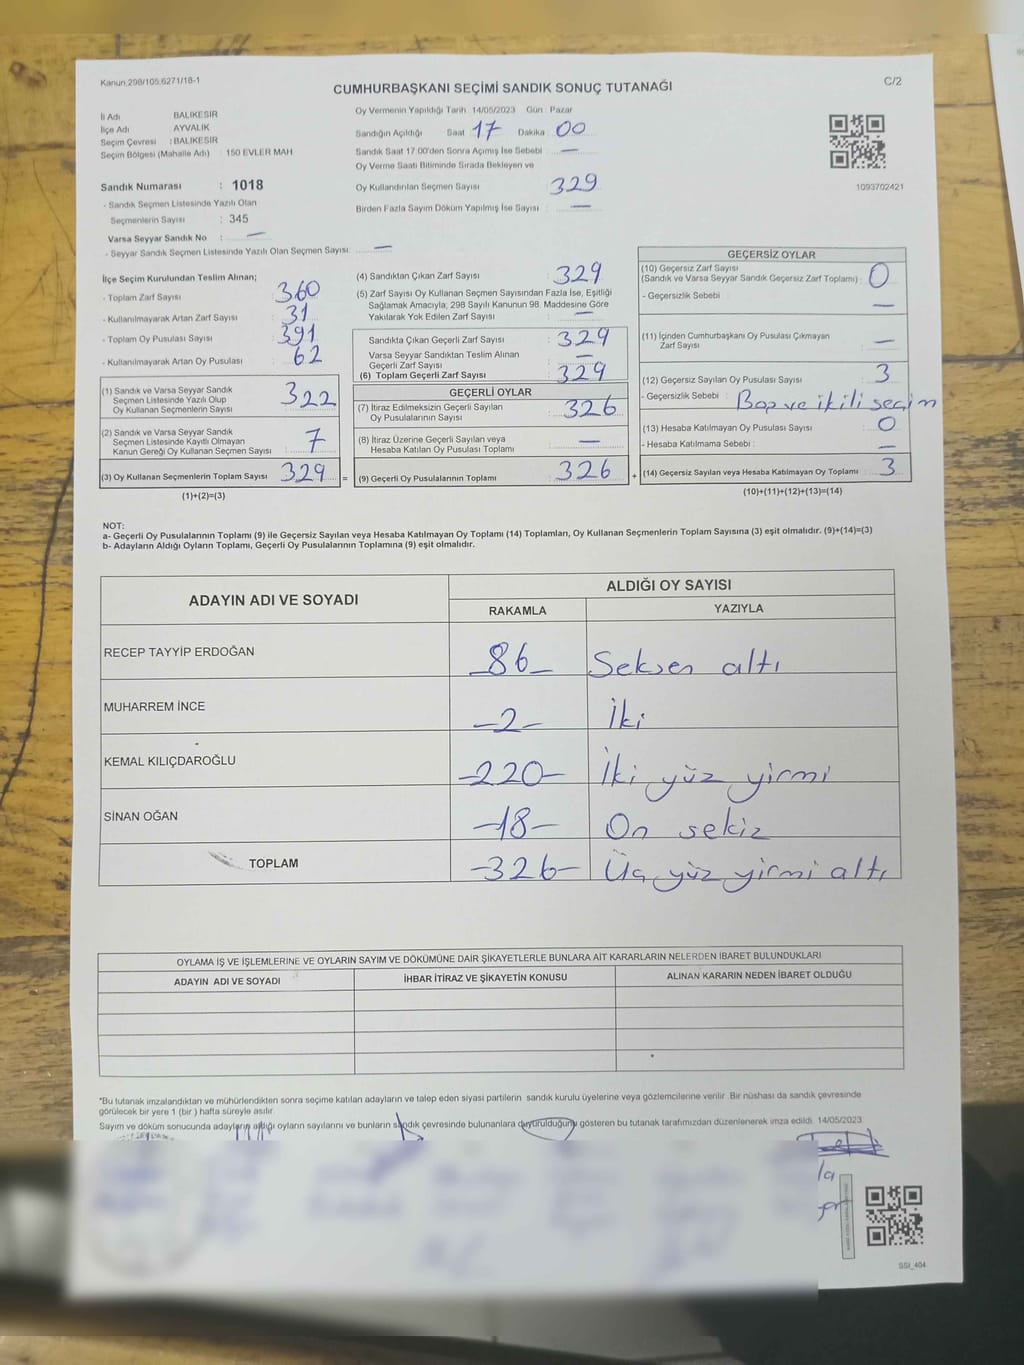 Kanun,298/105,6271/18-1
C/2
CUMHURBAŞKANI SEÇİMİ SANDIK SONUÇ TUTANAĞI
İl Adı BALIKESİR
İlçe Adı AYVALIK
Seçim Çevresi : BALIKESİR
Seçim Bölgesi (Mahalle Adı) : 150 EVLER MAH
Sandık Numarası : 1018
- Sandık Seçmen Listesinde Yazılı Olan
Seçmenlerin Sayısı : 345
Varsa Seyyar Sandık No : —
- Seyyar Sandık Seçmen Listesinde Yazılı Olan Seçmen Sayısı: —
Oy Vermenin Yapıldığı Tarih 14/05/2023 Gün : Pazar
Sandığın Açıldığı Saat 17 Dakika 00
Sandık Saat 17:00'den Sonra Açımış İse Sebebi : —
Oy Verme Saati Bitiminde Sırada Bekleyen ve
Oy Kullandırılan Seçmen Sayısı 329
Birden Fazla Sayım Döküm Yapılmış İse Sayısı : —
1093702421
İlçe Seçim Kurulundan Teslim Alınan;
- Toplam Zarf Sayısı : 360
- Kullanılmayarak Artan Zarf Sayısı : 31
- Toplam Oy Pusulası Sayısı : 391
- Kullanılmayarak Artan Oy Pusulası : 62
(1) Sandık ve Varsa Seyyar Sandık
Seçmen Listesinde Yazılı Olup
Oy Kullanan Seçmenlerin Sayısı : 322
(2) Sandık ve Varsa Seyyar Sandık
Seçmen Listesinde Kayıtlı Olmayan
Kanun Gereği Oy Kullanan Seçmen Sayısı : 7
(3) Oy Kullanan Seçmenlerin Toplam Sayısı : 329
(1)+(2)=(3)
=
(4) Sandıktan Çıkan Zarf Sayısı : 329
(5) Zarf Sayısı Oy Kullanan Seçmen Sayısından Fazla İse, Eşitliği
Sağlamak Amacıyla, 298 Sayılı Kanunun 98. Maddesine Göre
Yakılarak Yok Edilen Zarf Sayısı : —
Sandıkta Çıkan Geçerli Zarf Sayısı : 329
Varsa Seyyar Sandıktan Teslim Alınan
Geçerli Zarf Sayısı : —
(6) Toplam Geçerli Zarf Sayısı : 329
GEÇERLİ OYLAR
(7) İtiraz Edilmeksizin Geçerli Sayılan
Oy Pusulalarının Sayısı : 326
(8) İtiraz Üzerine Geçerli Sayılan veya
Hesaba Katılan Oy Pusulası Toplamı : —
(9) Geçerli Oy Pusulalarının Toplamı : 326
+
GEÇERSİZ OYLAR
(10) Geçersiz Zarf Sayısı
(Sandık ve Varsa Seyyar Sandık Geçersiz Zarf Toplamı) : 0
- Geçersizlik Sebebi : —
(11) İçinden Cumhurbaşkanı Oy Pusulası Çıkmayan
Zarf Sayısı : —
(12) Geçersiz Sayılan Oy Pusulası Sayısı : 3
- Geçersizlik Sebebi : Boş ve ikili seçim
(13) Hesaba Katılmayan Oy Pusulası Sayısı : 0
- Hesaba Katılmama Sebebi : —
(14) Geçersiz Sayılan veya Hesaba Katılmayan Oy Toplamı : 3
(10)+(11)+(12)+(13)=(14)
NOT:
a- Geçerli Oy Pusulalarının Toplamı (9) ile Geçersiz Sayılan veya Hesaba Katılmayan Oy Toplamı (14) Toplamları, Oy Kullanan Seçmenlerin Toplam Sayısına (3) eşit olmalıdır. (9)+(14)=(3)
b- Adayların Aldığı Oyların Toplamı, Geçerli Oy Pusulalarının Toplamına (9) eşit olmalıdır.
ADAYIN ADI VE SOYADI
ALDIĞI OY SAYISI
RAKAMLA YAZIYLA
RECEP TAYYİP ERDOĞAN -86- Seksen altı
MUHARREM İNCE -2- İki
KEMAL KILIÇDAROĞLU -220- İki yüz yirmi
SİNAN OĞAN -18- On sekiz
TOPLAM -326- Üç yüz yirmi altı
OYLAMA İŞ VE İŞLEMLERİNE VE OYLARIN SAYIM VE DÖKÜMÜNE DAİR ŞİKAYETLERLE BUNLARA AİT KARARLARIN NELERDEN İBARET BULUNDUKLARI
ADAYIN ADI VE SOYADI İHBAR İTİRAZ VE ŞİKAYETİN KONUSU ALINAN KARARIN NEDEN İBARET OLDUĞU
*Bu tutanak imzalandıktan ve mühürlendikten sonra seçime katılan adayların ve talep eden siyasi partilerin sandık kurulu üyelerine veya gözlemcilerine verilir. Bir nüshası da sandık çevresinde
görülecek bir yere 1 (bir ) hafta süreyle asılır.
Sayım ve döküm sonucunda adayların aldığı oyların sayılarını ve bunların sandık çevresinde bulunanlara duyurulduğunu gösteren bu tutanak tarafımızdan düzenlenerek imza edildi. 14/05/2023
SSI_404